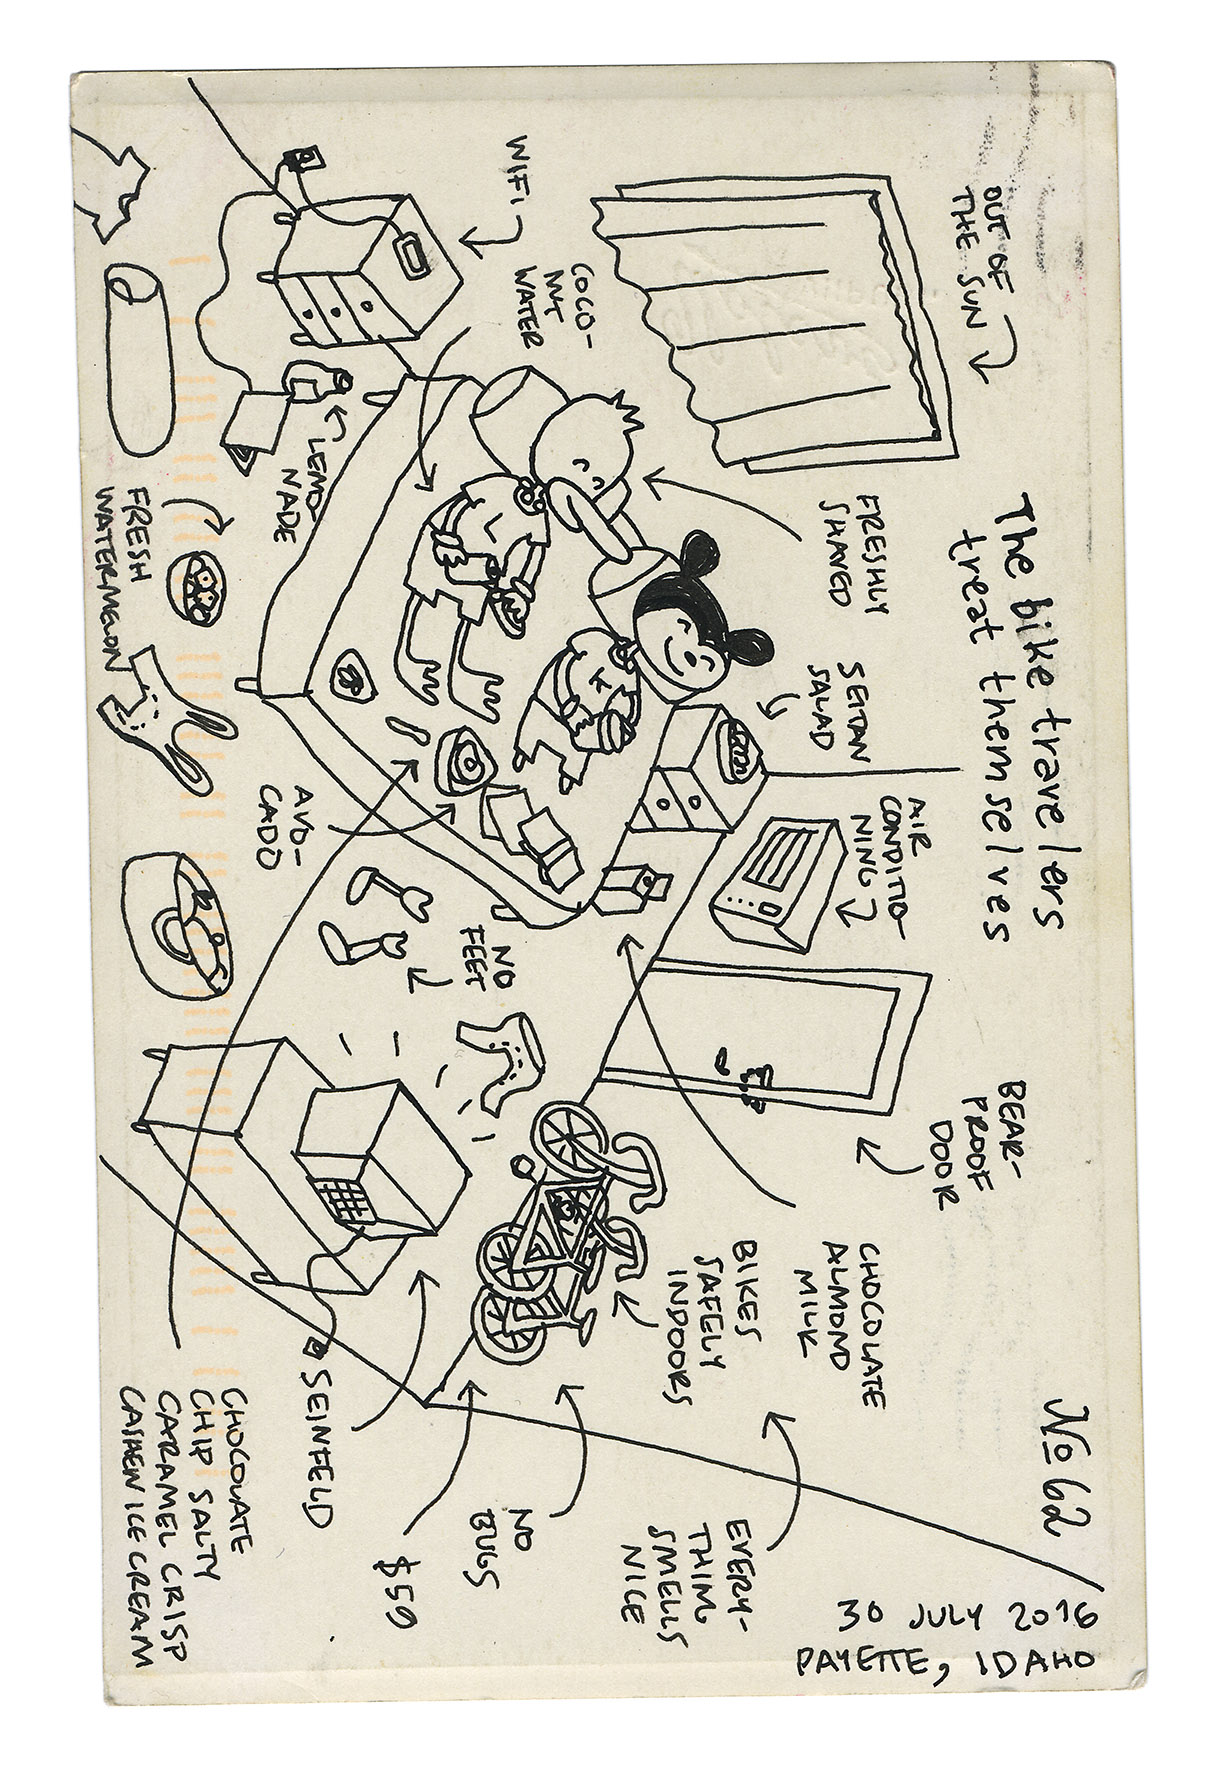 The bike travelers
treat themselves
No 62
30 JULY 2016
PAYETTE, IDAHO
OUT OF
THE SUN
WIFI
COCO-
NUT
WATER
FRESHLY
SHAVED
SEITAN
SALAD
AIR
CONDITIO-
NING
BEAR-
PROOF
DOOR
CHOCOLATE
ALMOND
MILK
BIKES
SAFELY
INDOORS
EVERY-
THING
SMELLS
NICE
NO
BUGS
$59
SEINFELD
NO
FEET
AVO-
CADO
LEMO
NADE
FRESH
WATERMELON
CHOCOLATE
CHIP SALTY
CARAMEL CRISP
CASHEW ICE CREAM